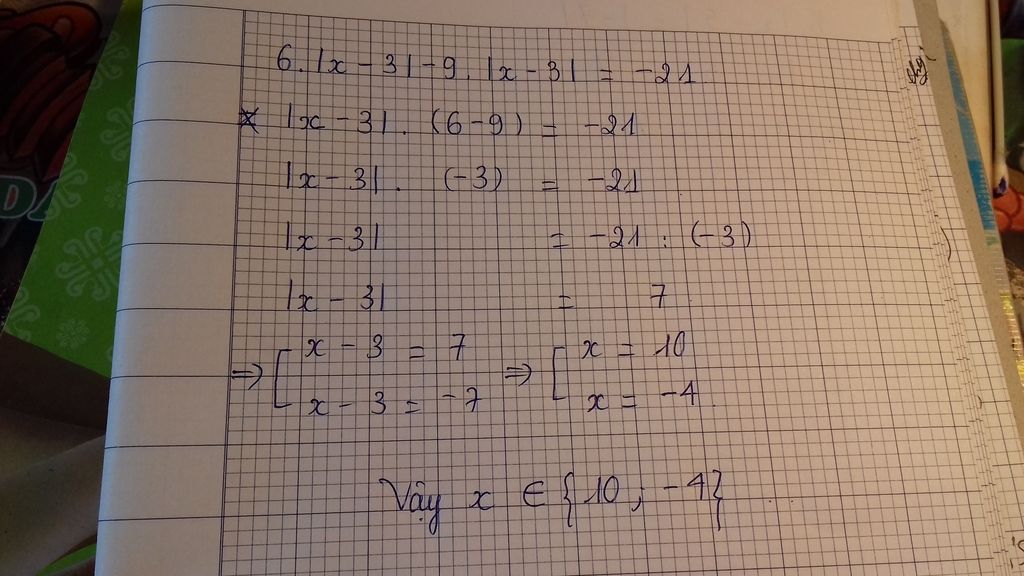 6. |x - 3| - 9. |x - 3| = -21
|x - 3|. (6 - 9) = -21
|x - 3|. (-3) = -21
|x - 3| = -21 : (-3)
|x - 3| = 7
⇒ [ x - 3 = 7 ⇒ [ x = 10
x - 3 = -7 x = -4
Vậy x ∈ {10 ; -4}